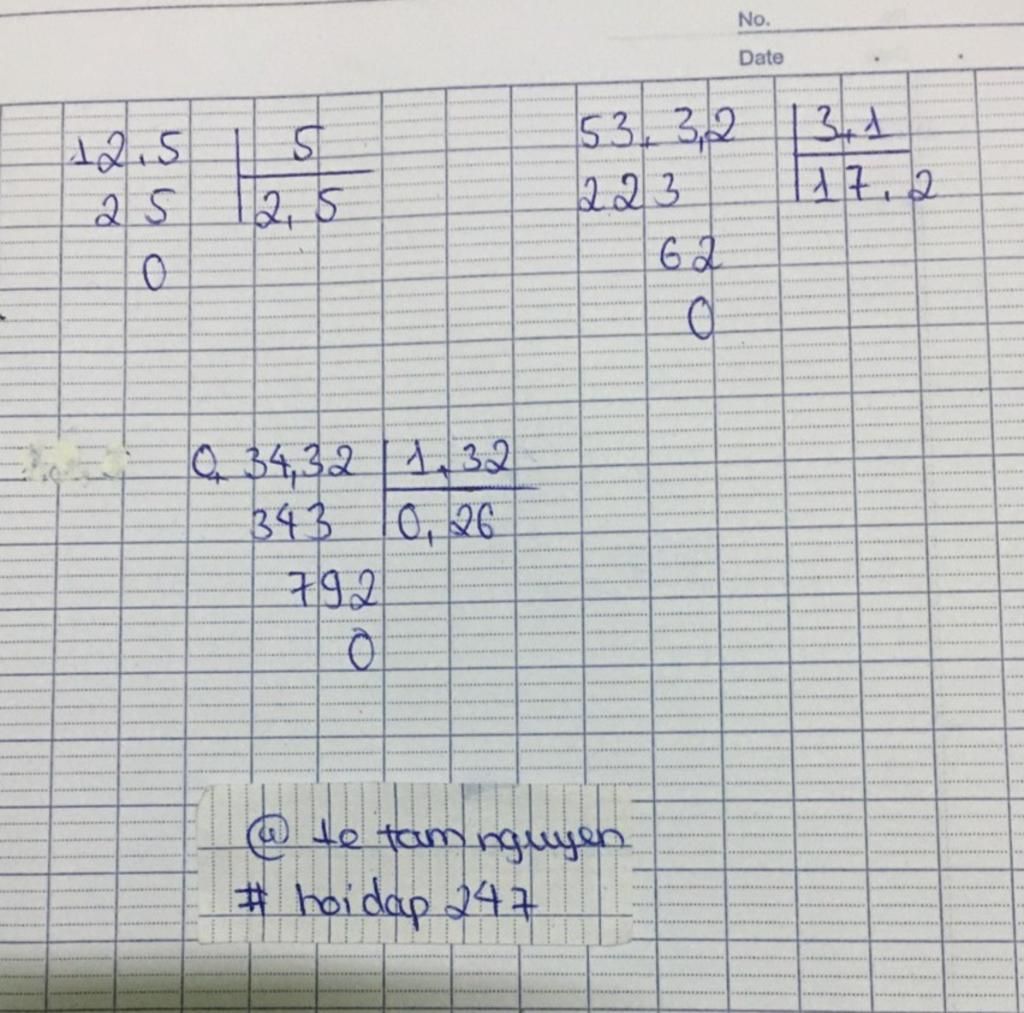 No.
Date
12,5 5
25 2,5
0
53,3,2 3,1
223 17,2
62
0
0,34,32 1,32
343 0,26
792
0
@ te tam nguyen
# hoidap 247